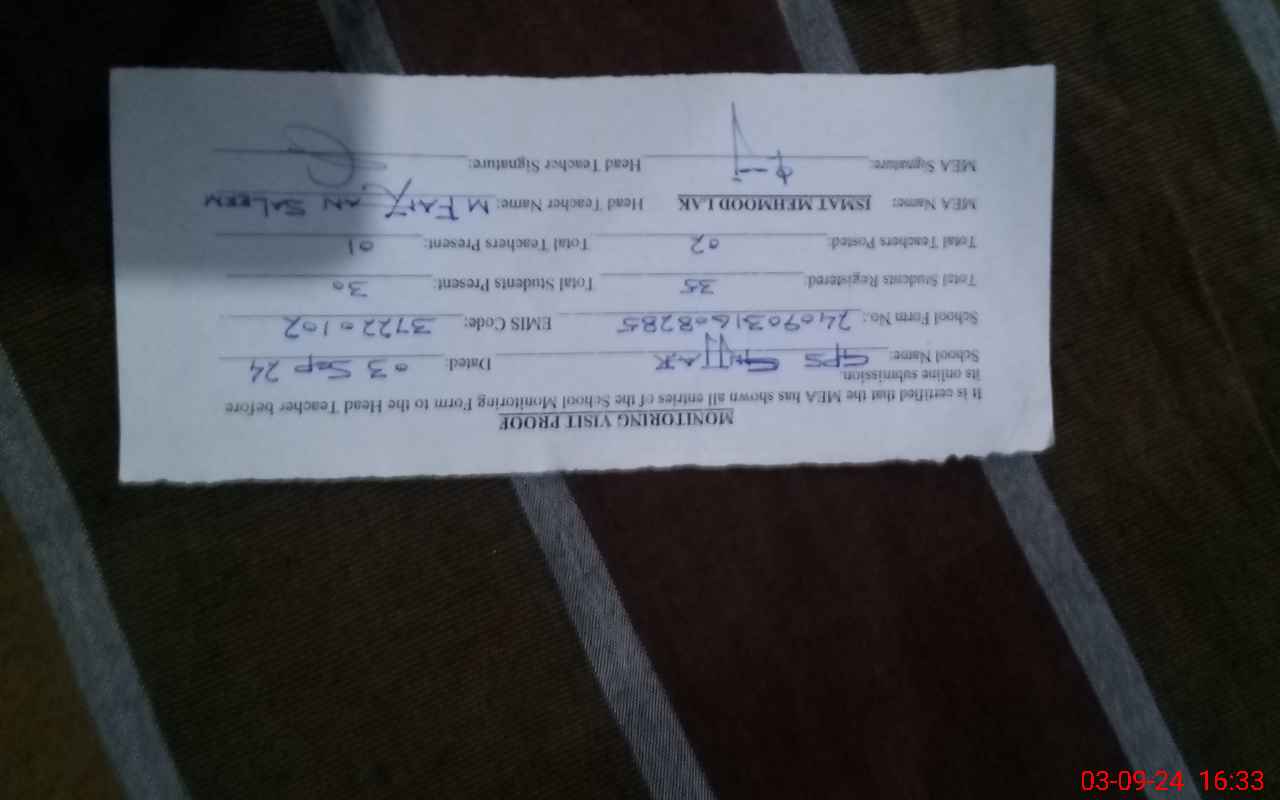 MONITORING VISIT PROOF
It is certified that the MEA has shown all entries of the School Monitoring Form to the Head Teacher before
its online submission.
School Name: GPS Dated: 03 Sep 24
School Form No.: 2409031608285 EMIS Code: 37220102
Total Students Registered: 35 Total Students Present: 30
Total Teachers Posted: 02 Total Teachers Present: 01
MEA Name: ISMAT MEHMOOD LAK Head Teacher Name: M FAIZAN SALEEM
MEA Signature: Head Teacher Signature:
03-09-24 16:33